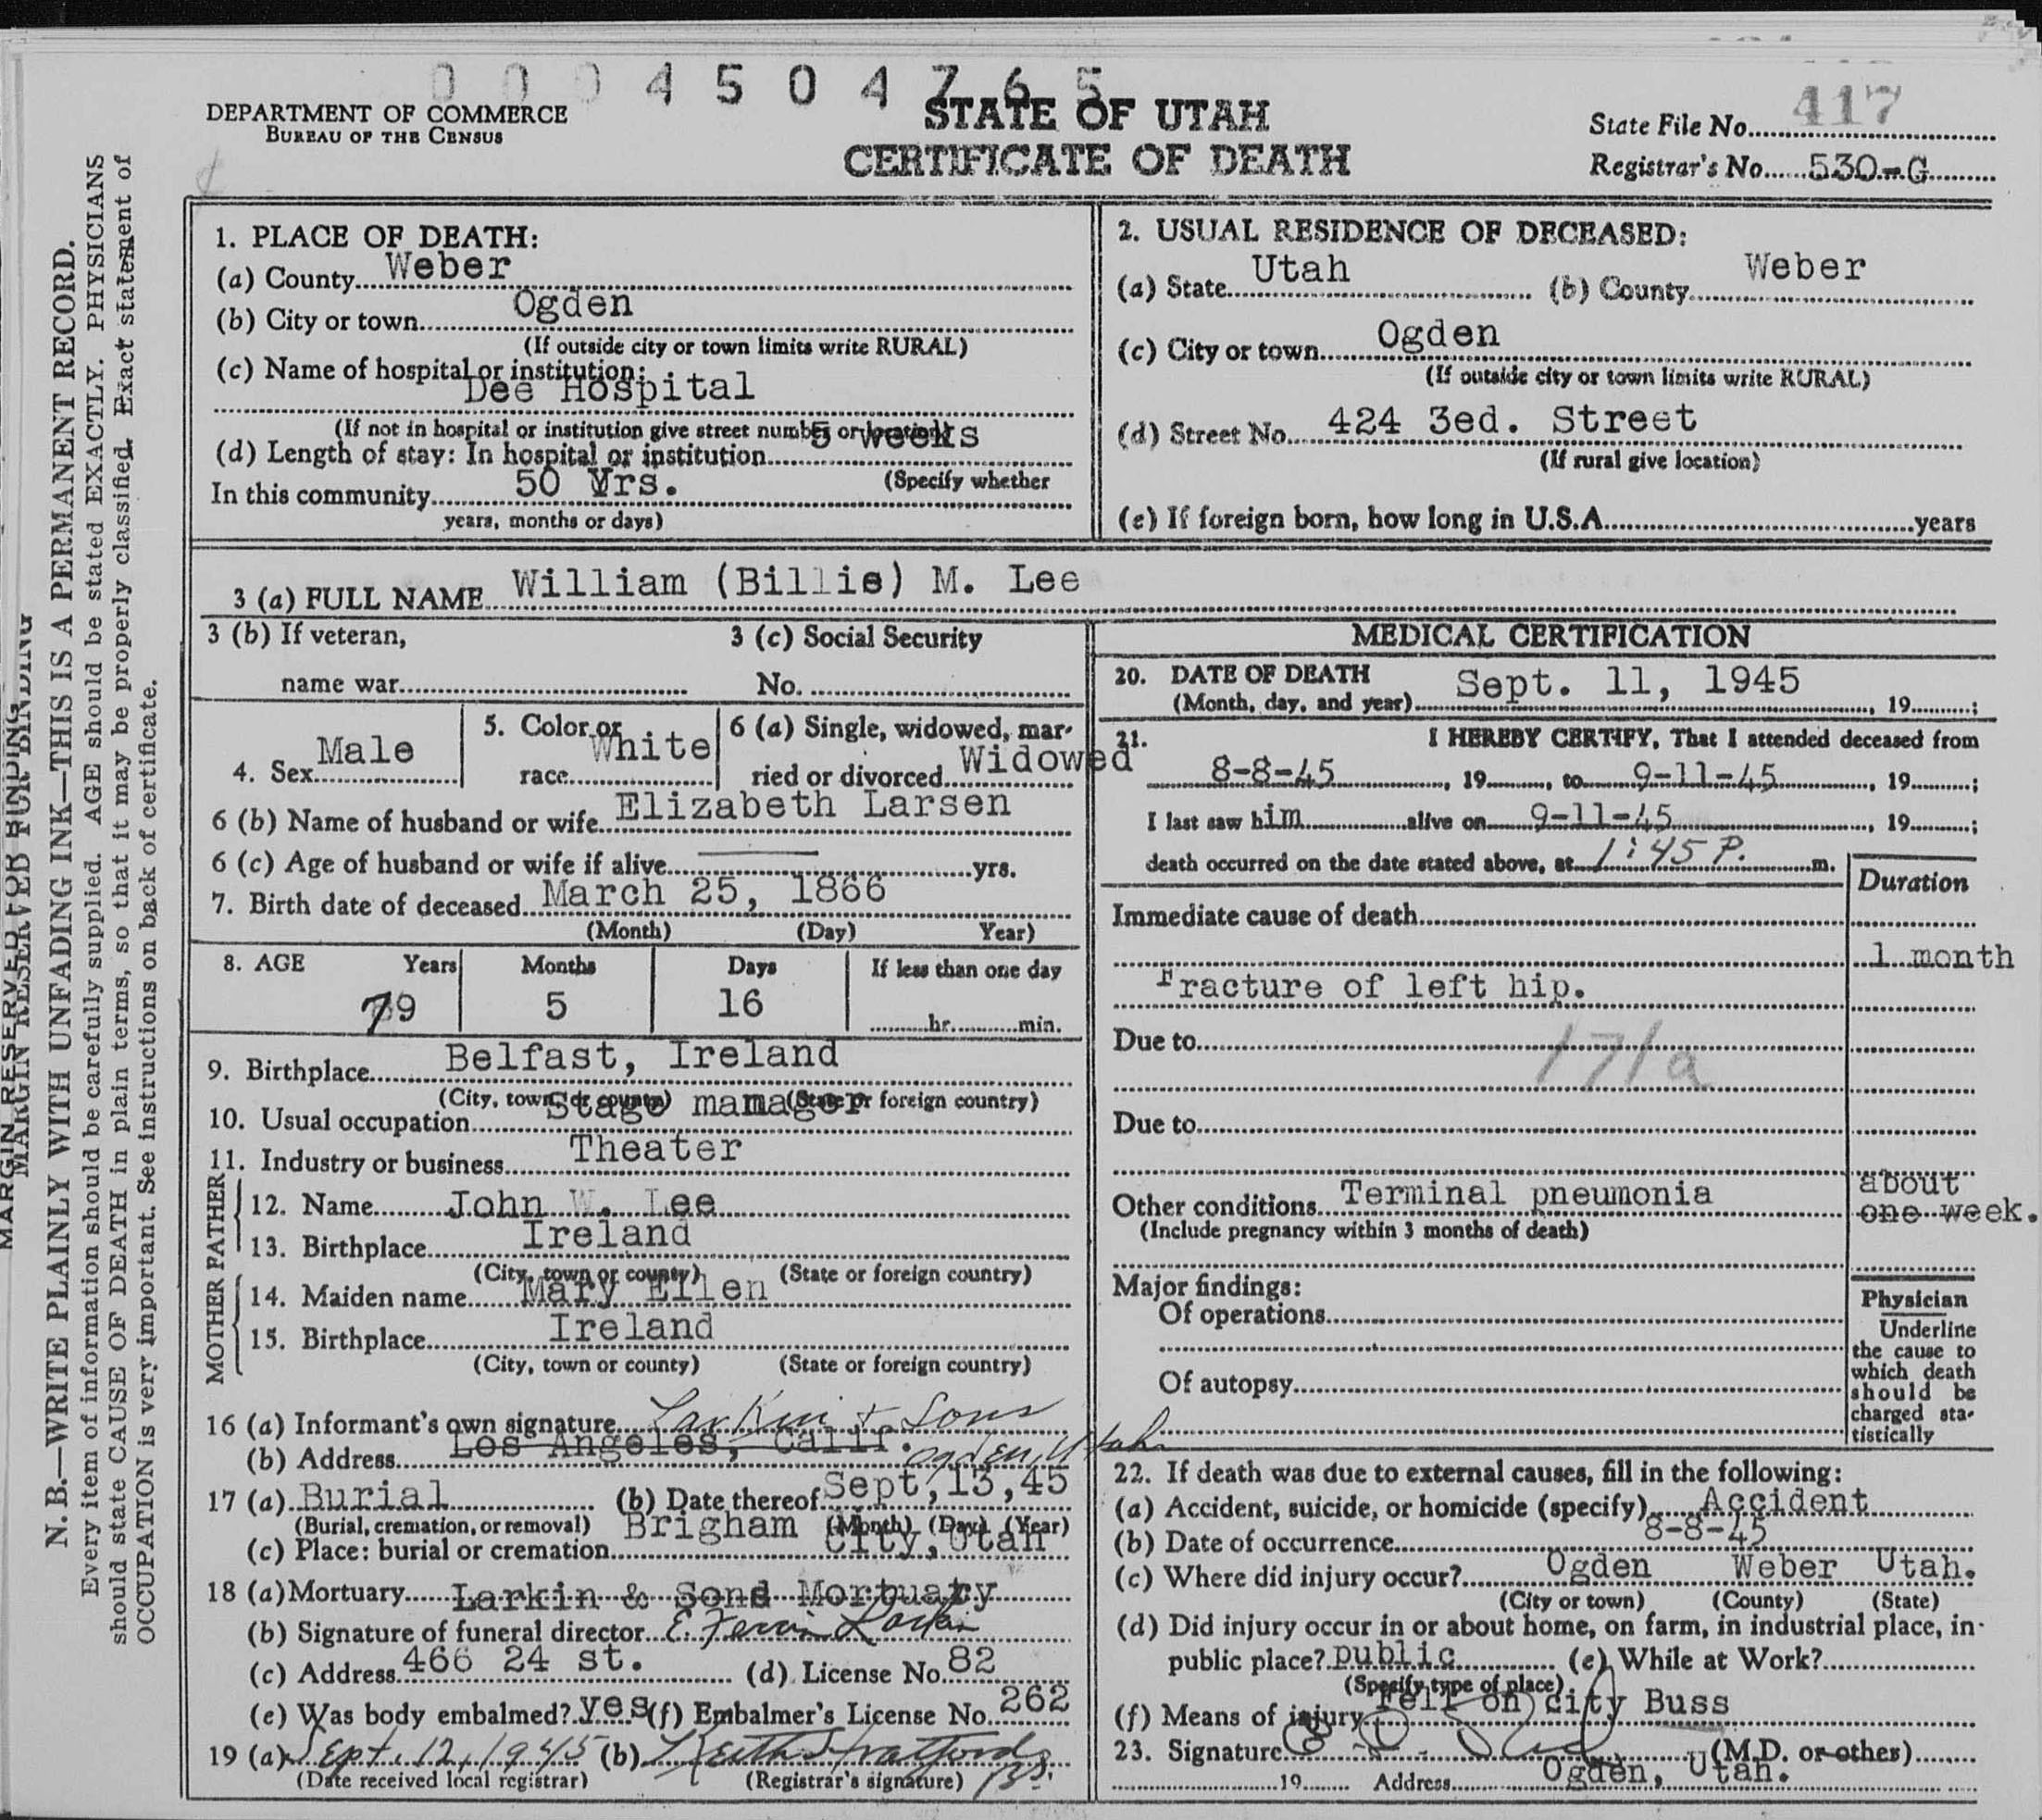 0 0 0 4 5 0 4 7 6 5
DEPARTMENT OF COMMERCE
BUREAU OF THE CENSUS
STATE OF UTAH
CERTIFICATE OF DEATH
State File No. 417
Registrar's No. 530-G
1. PLACE OF DEATH:
(a) County Weber
(b) City or town Ogden
(If outside city or town limits write RURAL)
(c) Name of hospital or institution:
Dee Hospital
(If not in hospital or institution give street number or location)
(d) Length of stay: In hospital or institution 5 weeks
(Specify whether
In this community 50 Yrs.
years, months or days)
2. USUAL RESIDENCE OF DECEASED:
(a) State Utah (b) County Weber
(c) City or town Ogden
(If outside city or town limits write RURAL)
(d) Street No. 424 3ed. Street
(If rural give location)
(e) If foreign born, how long in U.S.A. years
3 (a) FULL NAME William (Billie) M. Lee
3 (b) If veteran,
name war
3 (c) Social Security
No.
4. Sex Male
5. Color or race White
6 (a) Single, widowed, married or divorced Widowed
6 (b) Name of husband or wife Elizabeth Larsen
6 (c) Age of husband or wife if alive yrs.
7. Birth date of deceased March 25, 1866
(Month) (Day) Year)
8. AGE Years Months Days If less than one day
79 5 16 hr. min.
9. Birthplace Belfast, Ireland
(City, town, or county) (State or foreign country)
10. Usual occupation Stage manager
11. Industry or business Theater
FATHER
12. Name John W. Lee
13. Birthplace Ireland
(City, town or county) (State or foreign country)
MOTHER
14. Maiden name Mary Ellen
15. Birthplace Ireland
(City, town or county) (State or foreign country)
16 (a) Informant's own signature Larkin & Sons
(b) Address Los Angeles, Calif. Ogden, Utah
17 (a) Burial (b) Date thereof Sept, 13, 45
(Burial, cremation, or removal) (Month) (Day) (Year)
(c) Place: burial or cremation Brigham City, Utah
18 (a) Mortuary Larkin & Sons Mortuary
(b) Signature of funeral director E. Larkin
(c) Address 466 24 st. (d) License No. 82
(e) Was body embalmed? yes (f) Embalmer's License No. 262
19 (a) Sept. 12, 1945 (b) Keith Stratford
(Date received local registrar) (Registrar's signature)
MEDICAL CERTIFICATION
20. DATE OF DEATH
(Month, day, and year) Sept. 11, 1945, 19 ;
21. I HEREBY CERTIFY, That I attended deceased from
8-8-45, 19 , to 9-11-45, 19 ;
I last saw him alive on 9-11-45, 19 ;
death occurred on the date stated above, at 1:45 P. m.
Duration
Immediate cause of death
1 month
Fracture of left hip.
Due to 171a
Due to
Other conditions Terminal pneumonia about one week.
(Include pregnancy within 3 months of death)
Major findings:
Of operations
Of autopsy
Physician
Underline
the cause to
which death
should be
charged sta-
tistically
22. If death was due to external causes, fill in the following:
(a) Accident, suicide, or homicide (specify) Accident
(b) Date of occurrence 8-8-45
(c) Where did injury occur? Ogden Weber Utah.
(City or town) (County) (State)
(d) Did injury occur in or about home, on farm, in industrial place, in
public place? public (e) While at Work?
(Specify type of place)
(f) Means of injury Fell on city Buss
23. Signature (M.D. or other)
19 Address Ogden, Utah.
MARGIN RESERVED FOR BINDING
N. B.—WRITE PLAINLY WITH UNFADING INK—THIS IS A PERMANENT RECORD.
Every item of information should be carefully supplied. AGE should be stated EXACTLY. PHYSICIANS
should state CAUSE OF DEATH in plain terms, so that it may be properly classified. Exact statement of
OCCUPATION is very important. See instructions on back of certificate.